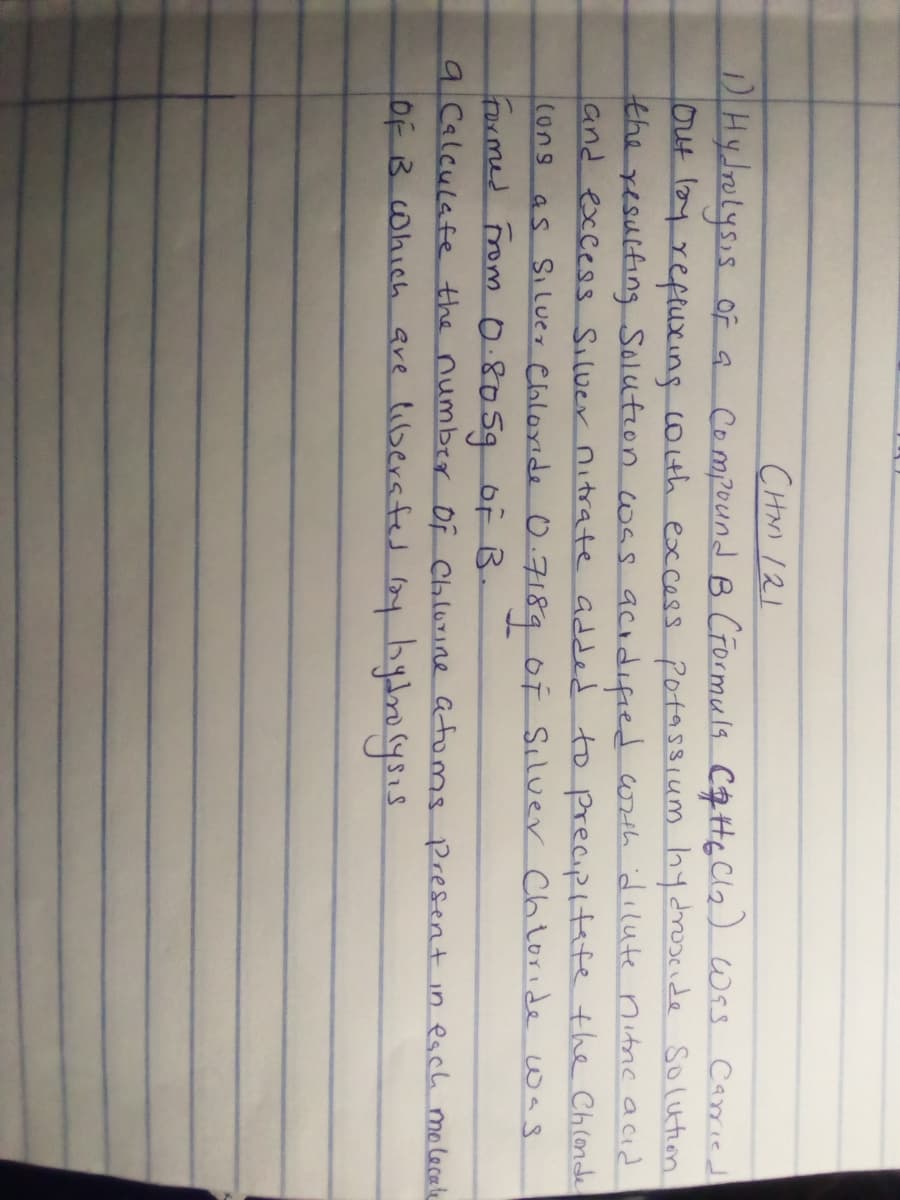 CHM 121
1) Hydrolysis of a Compound B (formula C7H6Cl2) was Carried
out by refluxing with excess potassium hydroxide Solution
the resulting Solution was acidified with dilute nitric acid
and excess Silver nitrate added to precipitate the Chloride
ions as Silver chloride 0.718g of Silver Chloride was
formed from 0.805g of B.
a Calculate the number of Chlorine atoms present in each molecule
of B which are liberated by hydrolysis